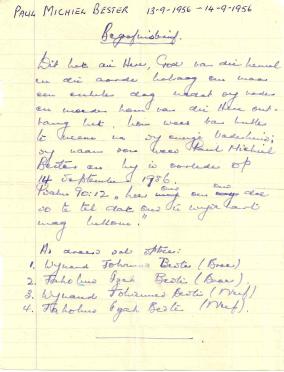 PAUL MICHIEL BESTER 13-9-1956 - 14-9-1956
Begrafnisbrief.
Dit het die Here, God van die hemel
en die aarde behaag om maar
een enkele dag nadat sy vader
en moeder hom van die Here ont-
vang het, hom weer van hulle
te neem na sy ewige Vaderhuis;
sy naam sou wees Paul Michiel
Bester en hy is oorlede op
14 September 1956.
Psalm 90:12, "Leer ons om ons dae
so te tel dat ons 'n wyse hart
mag bekom."
As draers sal optree:
1. Wynand Johannes Bester (Broer)
2. Izak Bester (Broer).
3. Wynand Johannes Bester (Neef)
4. Izak Bester (Neef).